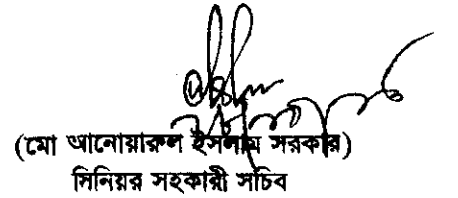 (মো আনোয়ারুল ইসলাম সরকার)
সিনিয়র সহকারী সচিব